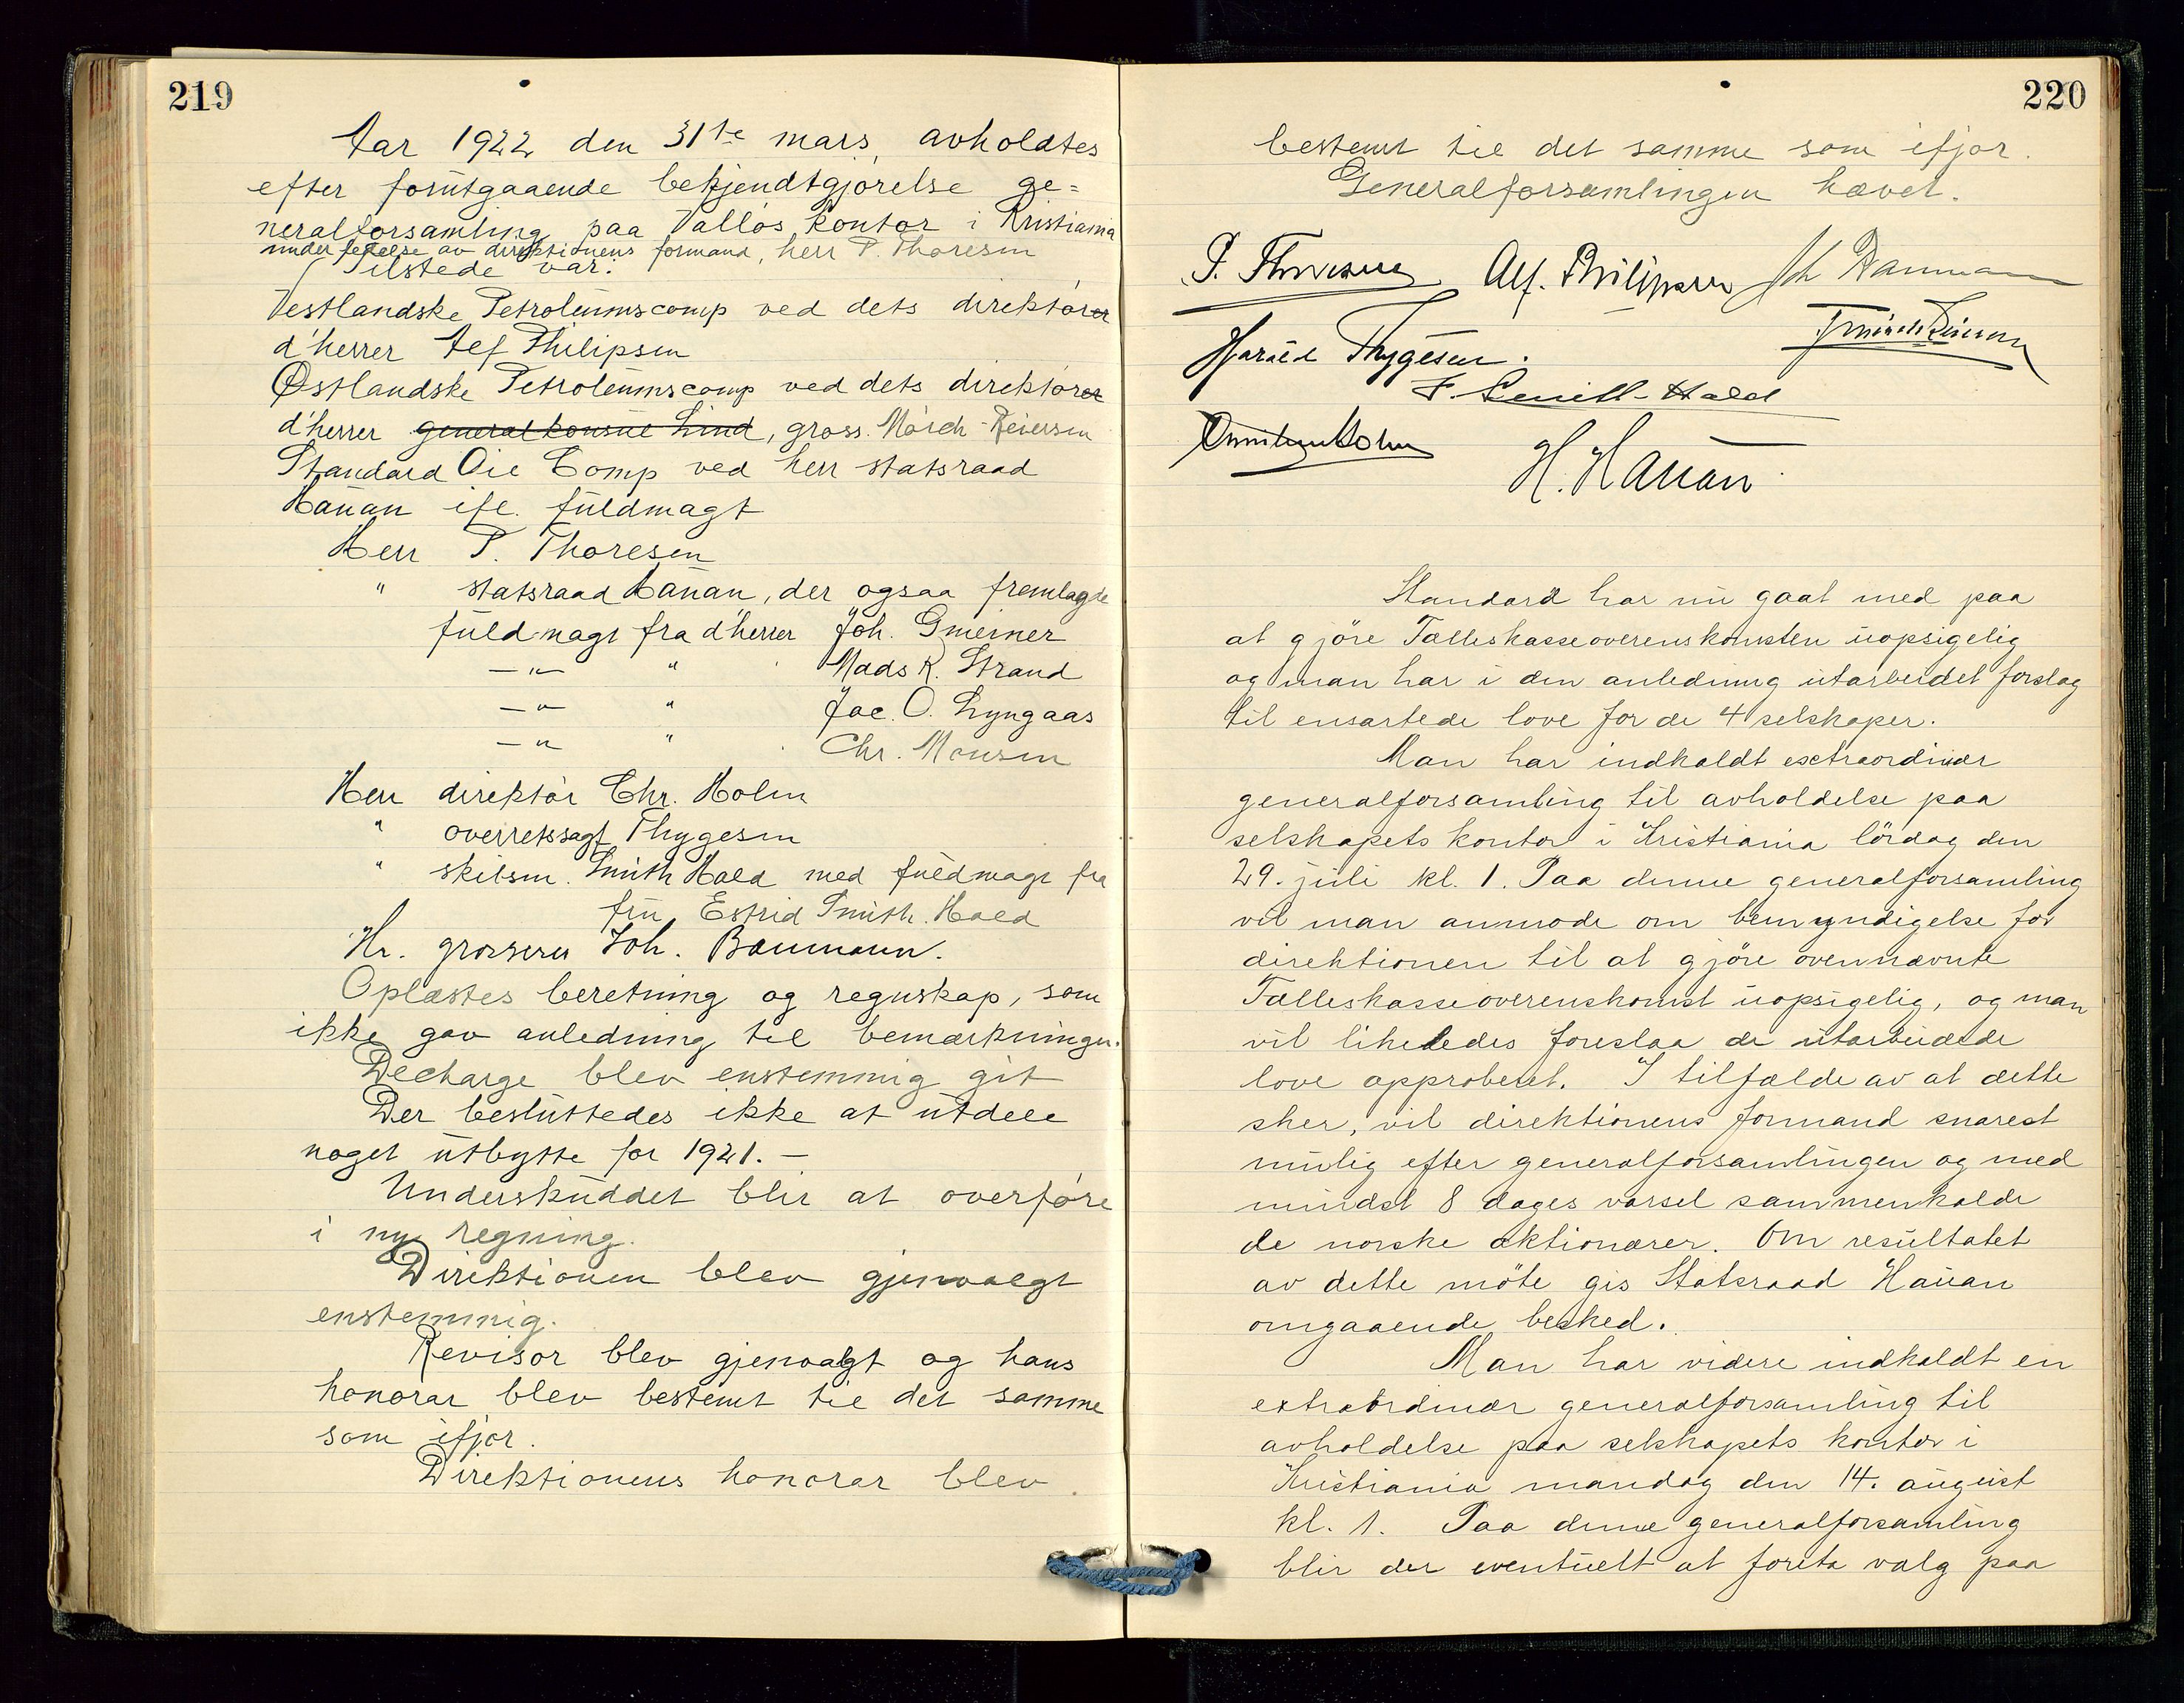 219
Aar 1922 den 31te mars, avholdtes
efter forutgaaende bekjendtgjørelse ge=
neralforsamling paa Valløs kontor i Kristiania
under ledelse av direktionens formand, herr P. Thoresen
Tilstede var:
Vestlandske Petroleumscomp ved dets direktører
d'herrer Alf Philipsen
Østlandske Petroleumscomp ved dets direktører
d'herrer generalkonsul Lind, gross. Mørch-Reiersen
Standard Oil Comp ved herr statsraad
Hauan ifl. fuldmagt
Herr P. Thoresen
" statsraad Hauan, der ogsaa fremlagde
fuldmagt fra d'herrer Joh. Gmeiner
—"— " Mads K. Strand
—"— " Jac. O. Lyngaas
—"— " Chr. Monsen
Herr direktør Chr. Holm
" overretssagf Thygesen
" skibsm. Smith Hald med fuldmagt fra
fru Estrid Smith. Hald
Hr. grosserer Joh. Baumann.
Oplæstes beretning og regnskap, som
ikke gav anledning til bemærkninger.
Decharge blev enstemmig git
Der besluttedes ikke at utdele
noget utbytte for 1921. —
Underskuddet blir at overføre
i ny regning.
Direktionen blev gjenvalgt
enstemmig.
Revisor blev gjenvalgt og hans
honorar blev bestemt til det samme
som ifjor.
Direktionens honorar blev
220
bestemt til det samme som ifjor.
Generalforsamlingen hævet.
P. Thoresen Alf. Philipsen Joh Baumann
Harald Thygesen. J Mørch Reiersen
F. Smith-Hald
Christian Holm H. Hauan
Standard har nu gaat med paa
at gjöre Fælleskasseoverenskomsten uopsigelig
og man har i den anledning utarbeidet forslag
til ensartede love for de 4 selskaper.
Man har indkaldt extraordinær
generalforsamling til avholdelse paa
selskapets kontor i Kristiania lördag den
29. juli kl. 1. Paa denne generalforsamling
vil man anmode om bemyndigelse for
direktionen til at gjöre ovennævnte
Fælleskasseoverenskomst uopsigelig, og man
vil likeledes foreslaa de utarbeidede
love approberet. I tilfælde av at dette
sker, vil direktionens formand snarest
mulig efter generalforsamlingen og med
mindst 8 dages varsel sammenkalde
de norske aktionærer. Om resultatet
av dette möte gis Statsraad Hauan
omgaaende besked.
Man har videre indkaldt en
extraordinær generalforsamling til
avholdelse paa selskapets kontor i
Kristiania mandag den 14. august
kl. 1. Paa denne generalforsamling
blir der eventuelt at foreta valg paa